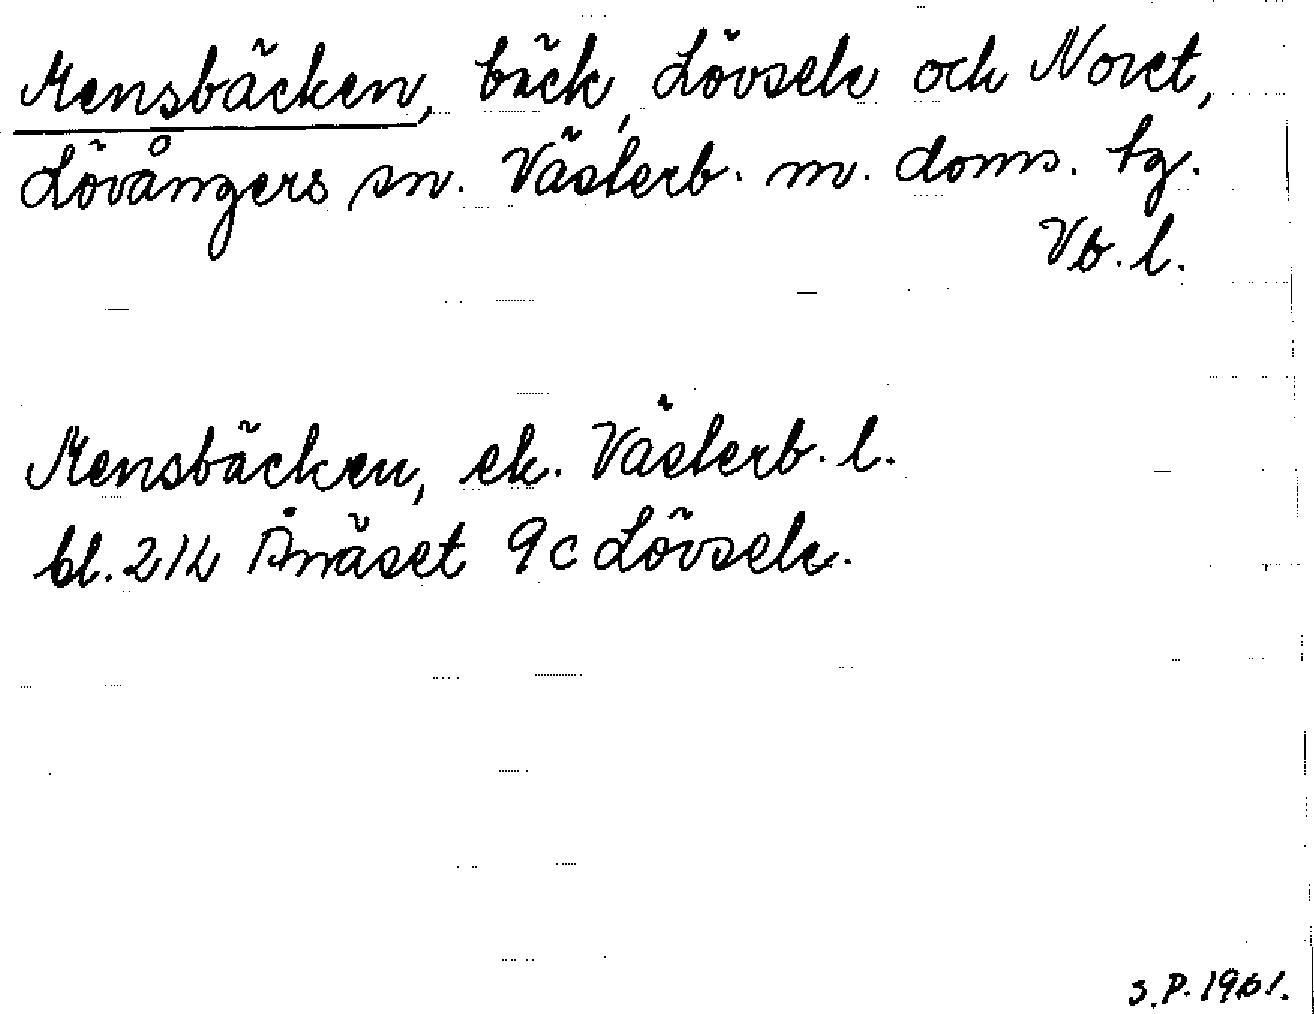 Mensbäcken, bäck, Lövsele och Noret,
Lövångers sn. Västerb. m. doms. tg.
Vb. l.
Mensbäcken, ek. Västerb. l.
bl. 21L Ånäset 9c Lövsele.
S.P. 1961.